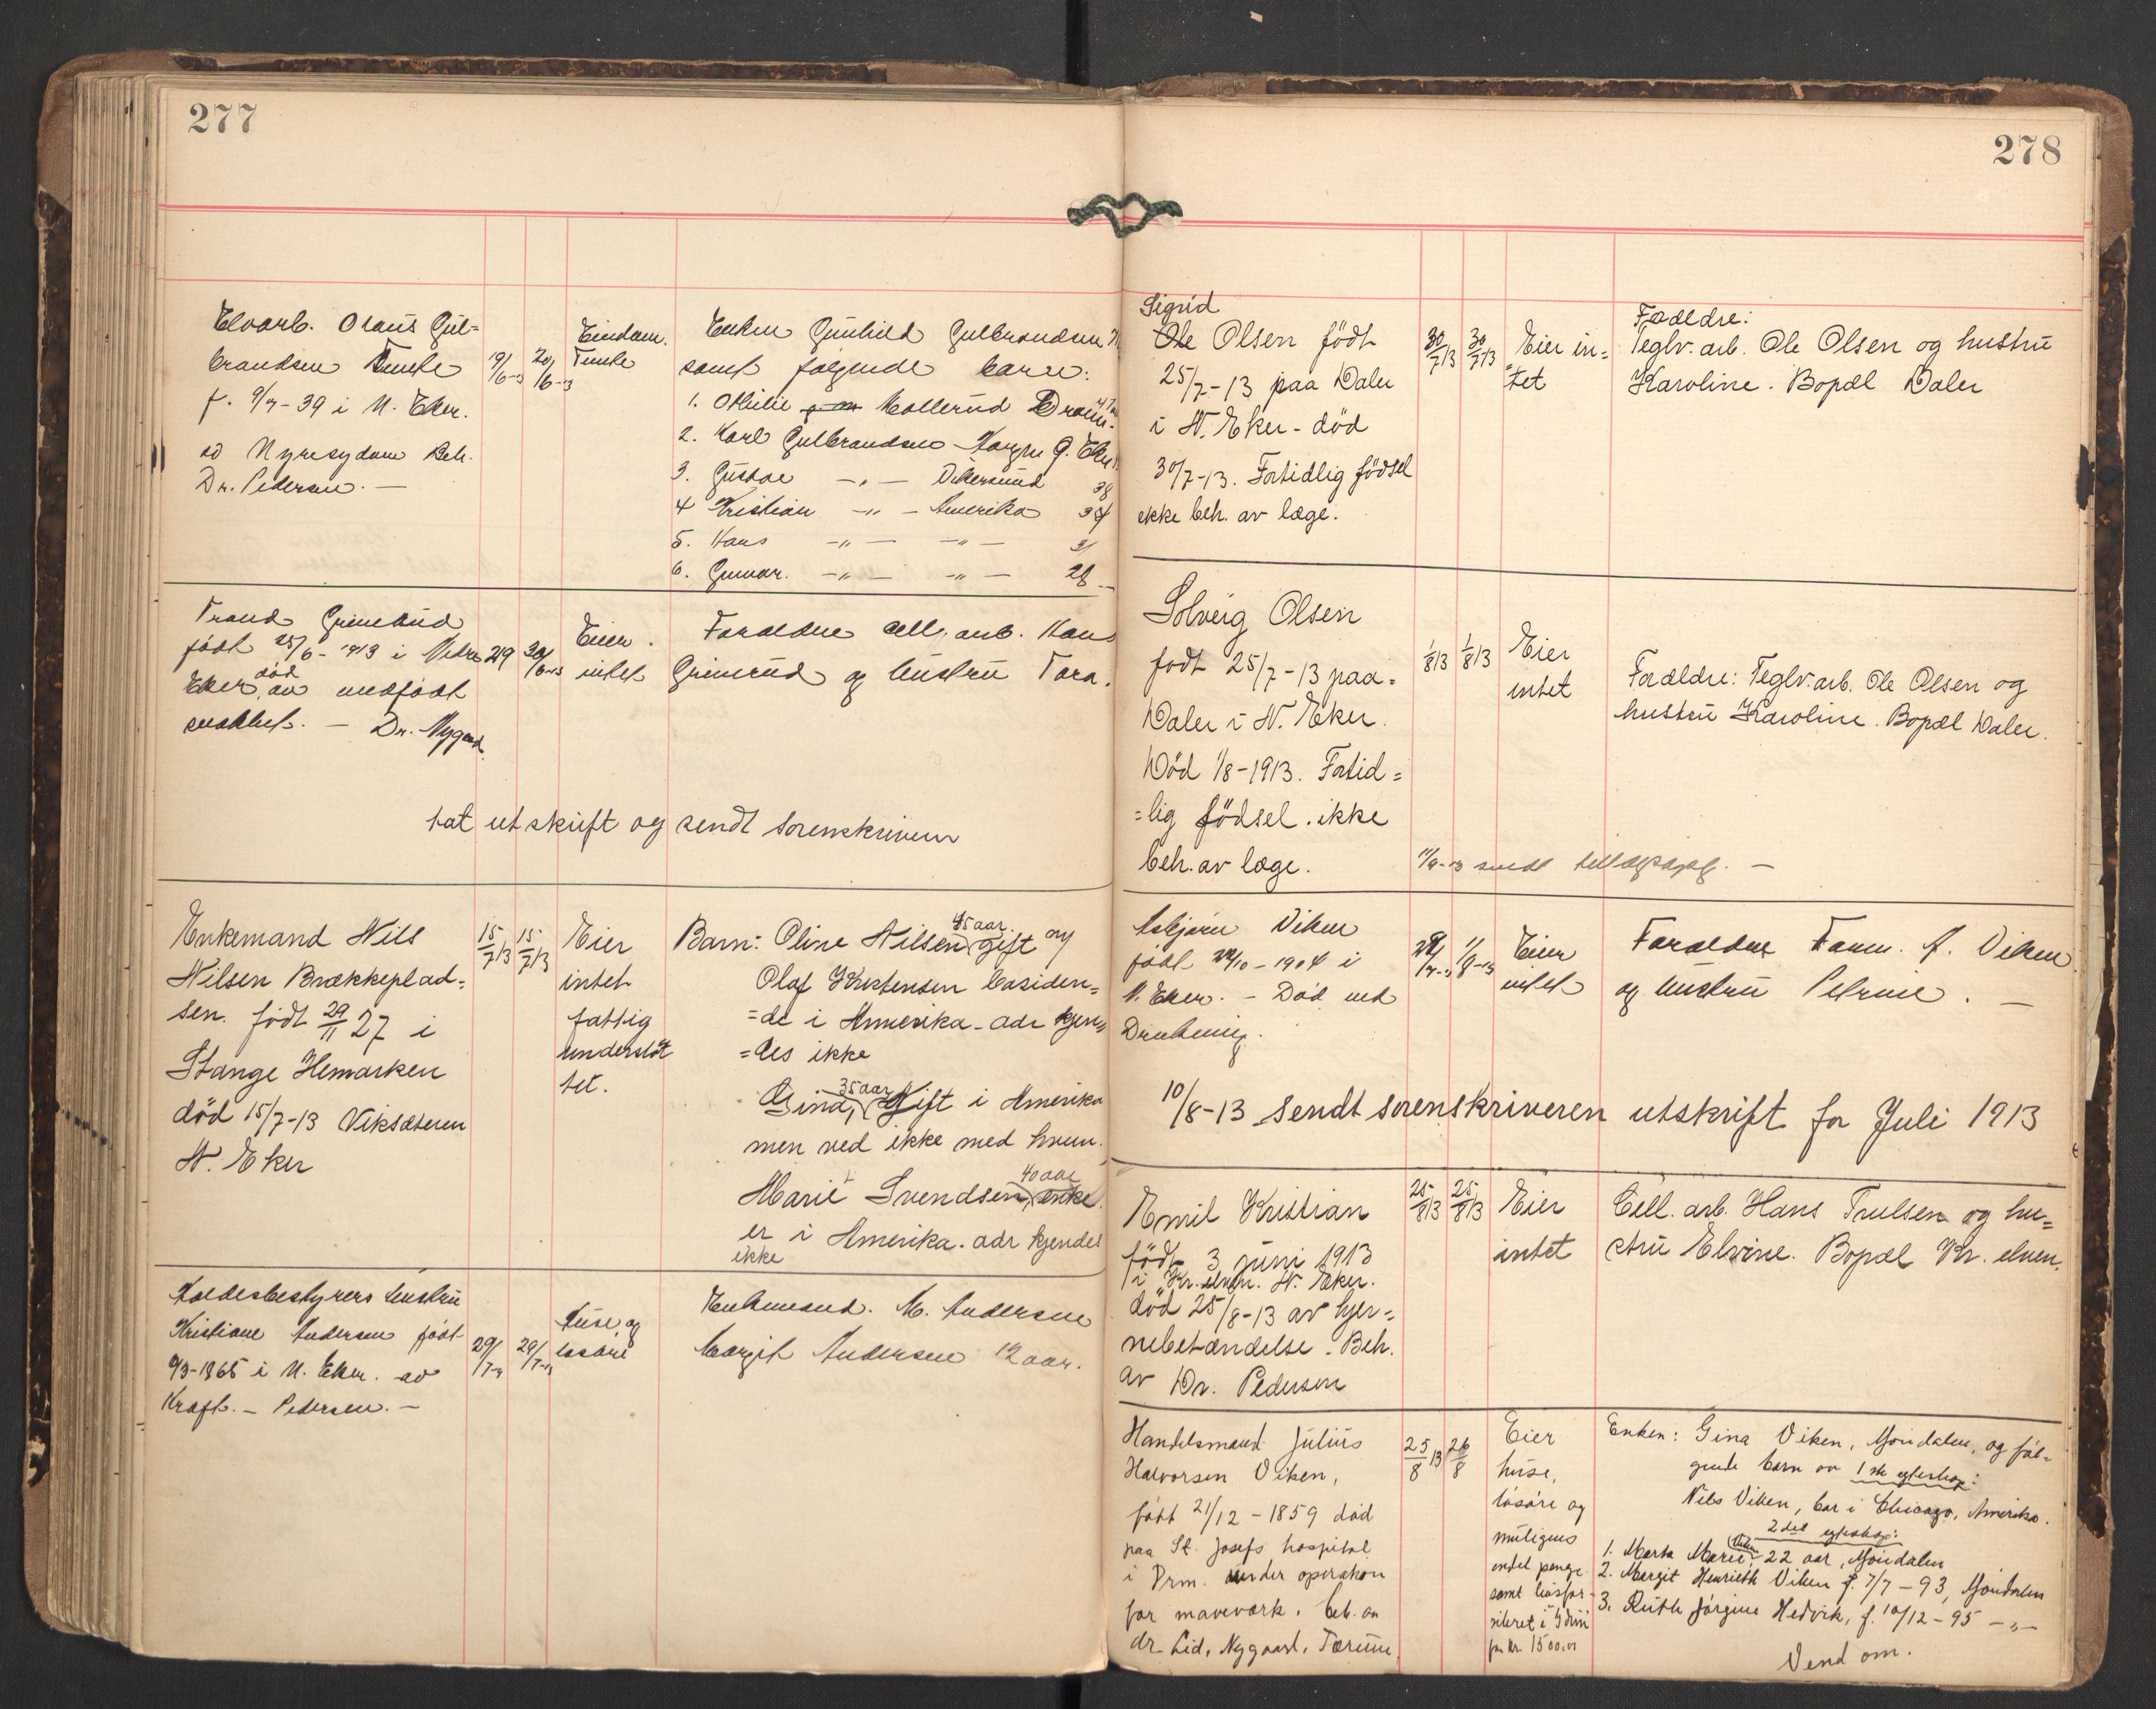 277
Elvarb. Olaus Gul-
brandsen Temte
f. 9/7-39 i N. Eker.
av Nyresygdom Beh.
Dr. Pedersen. —
19/6-13
20/6-13
Eiendom.
Temte
Enken Gunhild Gulbrandsen
samt følgende barn:
1. Othilie Kollerud Dram-
2. Karl Gulbrandsen Haugn Ø. Eker
3. Gustav —"— Vikersund 38
4 Kristian —"— Amerika 34
5. Hans —"— —"— 31
6. Gunnar. —"— —"— 28
Trand Grimerud
født 25/6-1913 i Nedre
Eker død av medfødt
svakhet. — Dr. Nygard
29
30/6-13
Eier
intet
Forældre cell. arb. Hans
Grimerud og hustru Tora.
tat utskrift og sendt sorenskriveren
Enkemand Nils
Nilsen Brækkeplad=
sen. født 29/11 27 i
Stange Hemarken
död 15/7-13 Viksæteren
N. Eker
15/7 13
15/7 13
Eier
intet
fattig
understöt
tet.
Barn: Oline Nilsen, 45 aar gift av
Olaf Kristensen bosiden=
=de i Amerika - adr kjen=
=des ikke
Gina, 35 aar Gift i Amerika
men ved ikke med hvem.
Marie Svendsen, 40 aar enke.
er i Amerika. adr kjendes
ikke
Holdesbestyrers hustru
Kristiane Andersen født
9/3-1865 i N. Eker. av
Kræft. — Pedersen. —
29/7-13
29/7-13
Huse og
løsøre
Enkemand. M. Andersen
Margit Andersen 12 aar.
278
Sigrid
Ole Olsen födt
25/7-13 paa Daler
i N. Eker - död
30/7-13. Fortidlig födsel
ikke beh. av læge.
30/7 13
30/7 13
Eier in=
tet
Forældre:
Teglv. arb. Ole Olsen og hustru
Karoline. Bopæl Daler
Solveig Olsen
født 25/7-13 paa
Daler i N. Eker.
Död 1/8-1913. Fortid=
=lig födsel. ikke
beh. av læge.
1/8 13
1/8 13
Eier
intet
Forældre: Teglv. arb. Ole Olsen og
hustru Karoline. Bopæl Daler.
11/9-13 sendt
Asbjørn Viken
født /10-1904 i
N. Eker. - Død ved
Drukning.
1/8-13
Eier
intet
Forældre Tømm. A. Viken
og hustru Petrine. —
10/8-13 sendt sorenskriveren utskrift for Juli 1913
Emil Kristian
födt 3 juni 1913
i Kr. elven. N. Eker.
död 25/8-13 av hjer=
nebetændelse. Beh.
av Dr. Pedersen
25/8 13
25/8 13
Eier
intet
Cell. arb. Hans Trulsen og hu=
stru Elvine. Bopæl Kr. elven.
Handelsmand Julius
Halvorsen Viken,
født 21/12 - 1859 død
paa St. Josefs hospital
i Drm. under operation
for mavevark. beh. av
dr. Lid, Nygaard, Tørum.
25/8 13
26/8
Eier
huse,
løsøre og
muligens
endel penge
samt livsfor-
sikret i Idun
for kr 1500,00
Enken: Gina Viken, Mjøndalen, og føl-
gende barn av 1ste egteskap:
Nils Viken, bor i Chicago, Amerika.
2det egteskap:
1. Marta Marie Viken 22 aar, Mjøndalen
2. Margit Henriette Viken f. 7/7 - 93, Mjøndalen
3. Ruth Jørgine Hedvik, f. 10/12 - 95 —"—
Vend om.